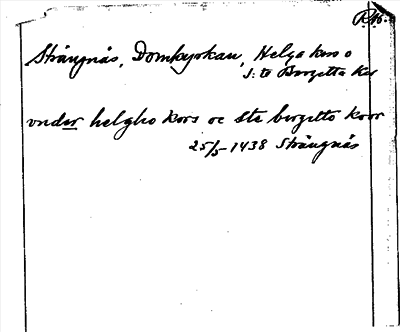 Strängnäs, Domkyrkan, Helga kors o
S:ta Birgitta kor
vnder helgho kors oc ste birgitto koor
25/5 1438 Strängnäs